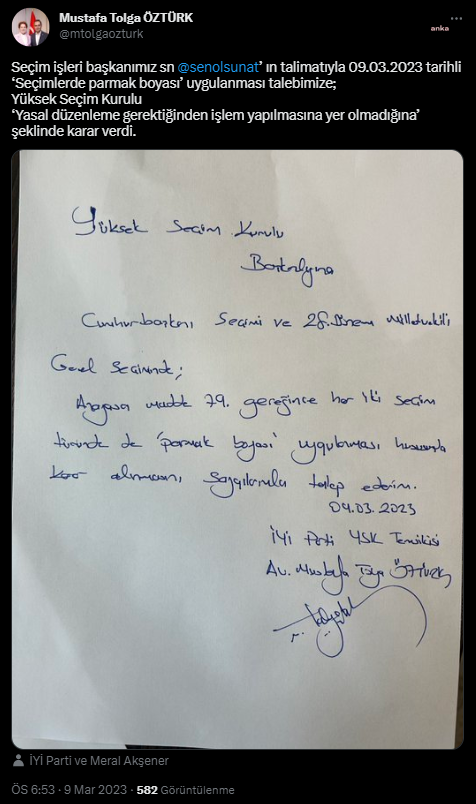 Mustafa Tolga ÖZTÜRK
@mtolgaozturk
anka
Seçim işleri başkanımız sn @senolsunat’ ın talimatıyla 09.03.2023 tarihli
‘Seçimlerde parmak boyası’ uygulanması talebimize;
Yüksek Seçim Kurulu
‘Yasal düzenleme gerektiğinden işlem yapılmasına yer olmadığına’
şeklinde karar verdi.
Yüksek Seçim Kurulu
Başkanlığına
Cumhurbaşkanı Seçimi ve 28. Dönem Milletvekili
Genel Seçiminde;
Anayasa madde 79. gereğince her iki seçim
türünde de 'parmak boyası' uygulanması hususunda
karar alınmasını saygılarımla talep ederim.
09.03.2023
İYİ Parti YSK Temsilcisi
Av. Mustafa Tolga ÖZTÜRK
İYİ Parti ve Meral Akşener
ÖS 6:53 · 9 Mar 2023 · 582 Görüntülenme